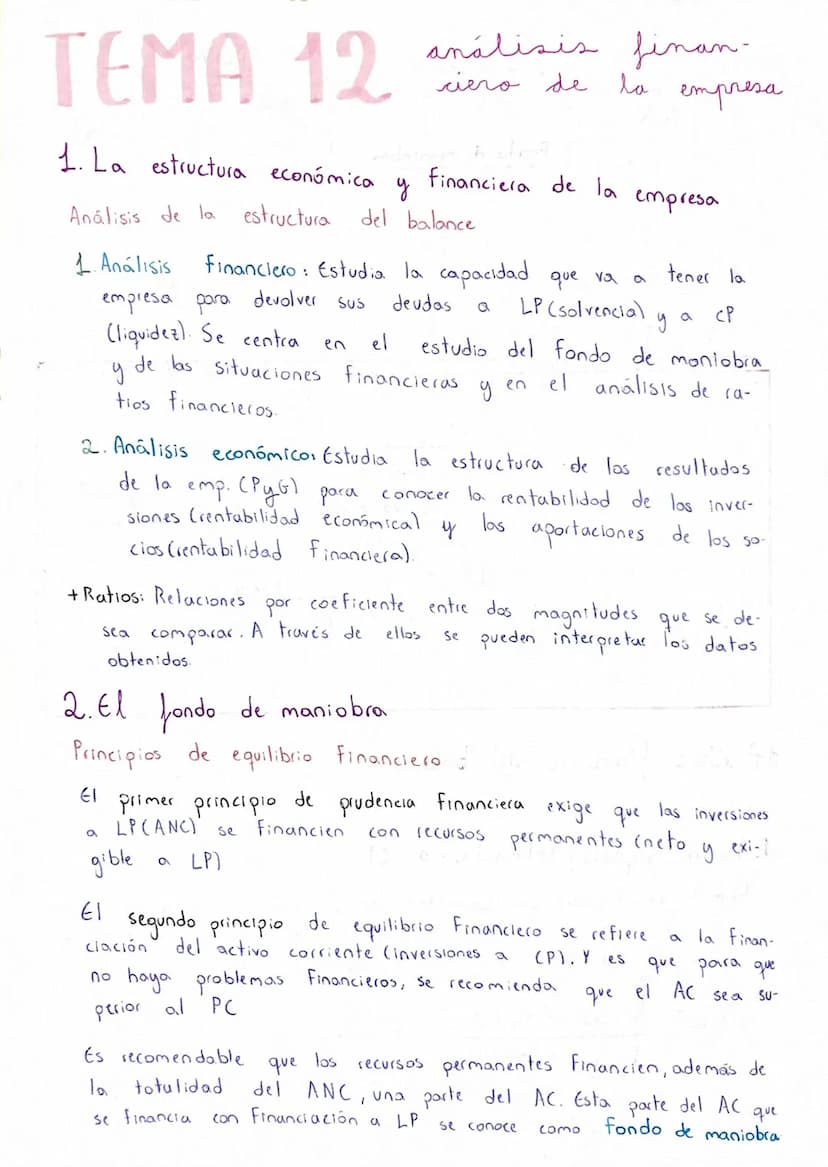 TEMA 12 análisis finan-
ciero de la empresa
1. La estructura económica y financiera de la empresa
Análisis de la estructura del balance
1. Análisis financiero: Estudia la capacidad que va a tener la
empresa para devolver sus deudas a LP (solvencia) y a CP
(liquidez). Se centra en el estudio del fondo de maniobra
y de las situaciones financieras y en el análisis de ra-
tios financieros.
2. Análisis económico: Estudia la estructura de los resultados
de la emp. (PyG) para conocer la rentabilidad de las inver-
siones (rentabilidad económica) y las aportaciones de los so-
cios (rentabilidad financiera).
+ Ratios: Relaciones por coeficiente entre dos magnitudes que se de-
sea comparar. A través de ellos se pueden interpretar los datos
obtenidos.
2. El fondo de maniobra
Principios de equilibrio financiero
El primer principio de prudencia financiera exige que las inversiones
a LP (ANC) se financien con recursos permanentes (neto y exi-
gible a LP)
El segundo principio de equilibrio financiero se refiere a la finan-
ciación del activo corriente (inversiones a CP). Y es que para que
no haya problemas financieros, se recomienda que el AC sea su-
perior al PC
Es recomendable que los recursos permanentes financien, además de
la totalidad del ANC, una parte del AC. Esta parte del AC que
se financia con financiación a LP se conoce como fondo de maniobra